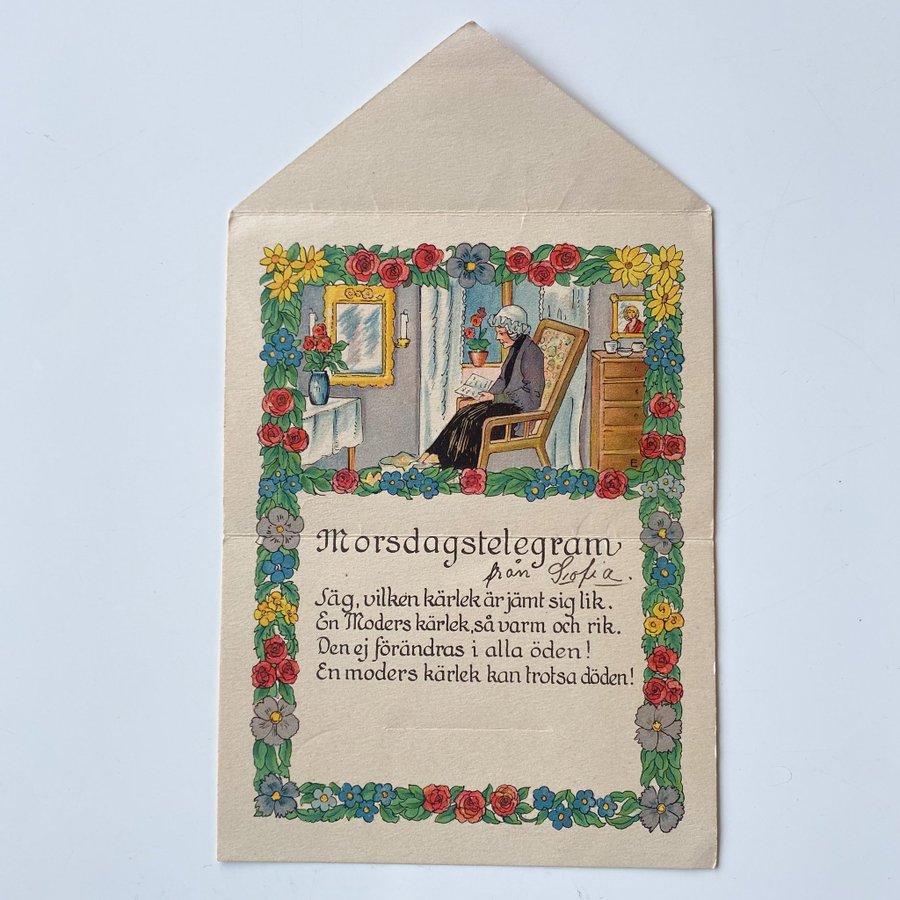 Morsdagstelegram
från Sofia.
Säg, vilken kärlek är jämt sig lik.
En Moders kärlek, så varm och rik.
Den ej förändras i alla öden!
En moders kärlek kan trotsa döden!